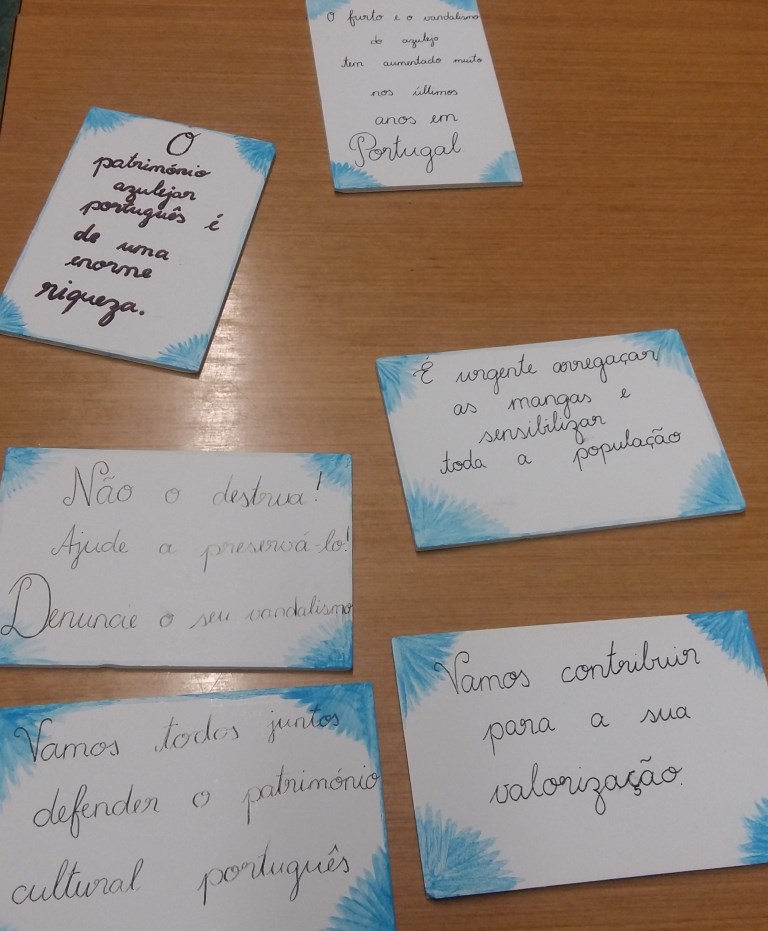 O furto e o vandalismo
do azulejo
tem aumentado muito
nos últimos
anos em
Portugal
O
património
azulejar
português é
de uma
enorme
riqueza.
É urgente arregaçar
as mangas e
sensibilizar
toda a população
Não o destrua!
Ajude a preservá-lo!
Denuncie o seu vandalismo
Vamos contribuir
para a sua
valorização.
Vamos todos juntos
defender o património
cultural português